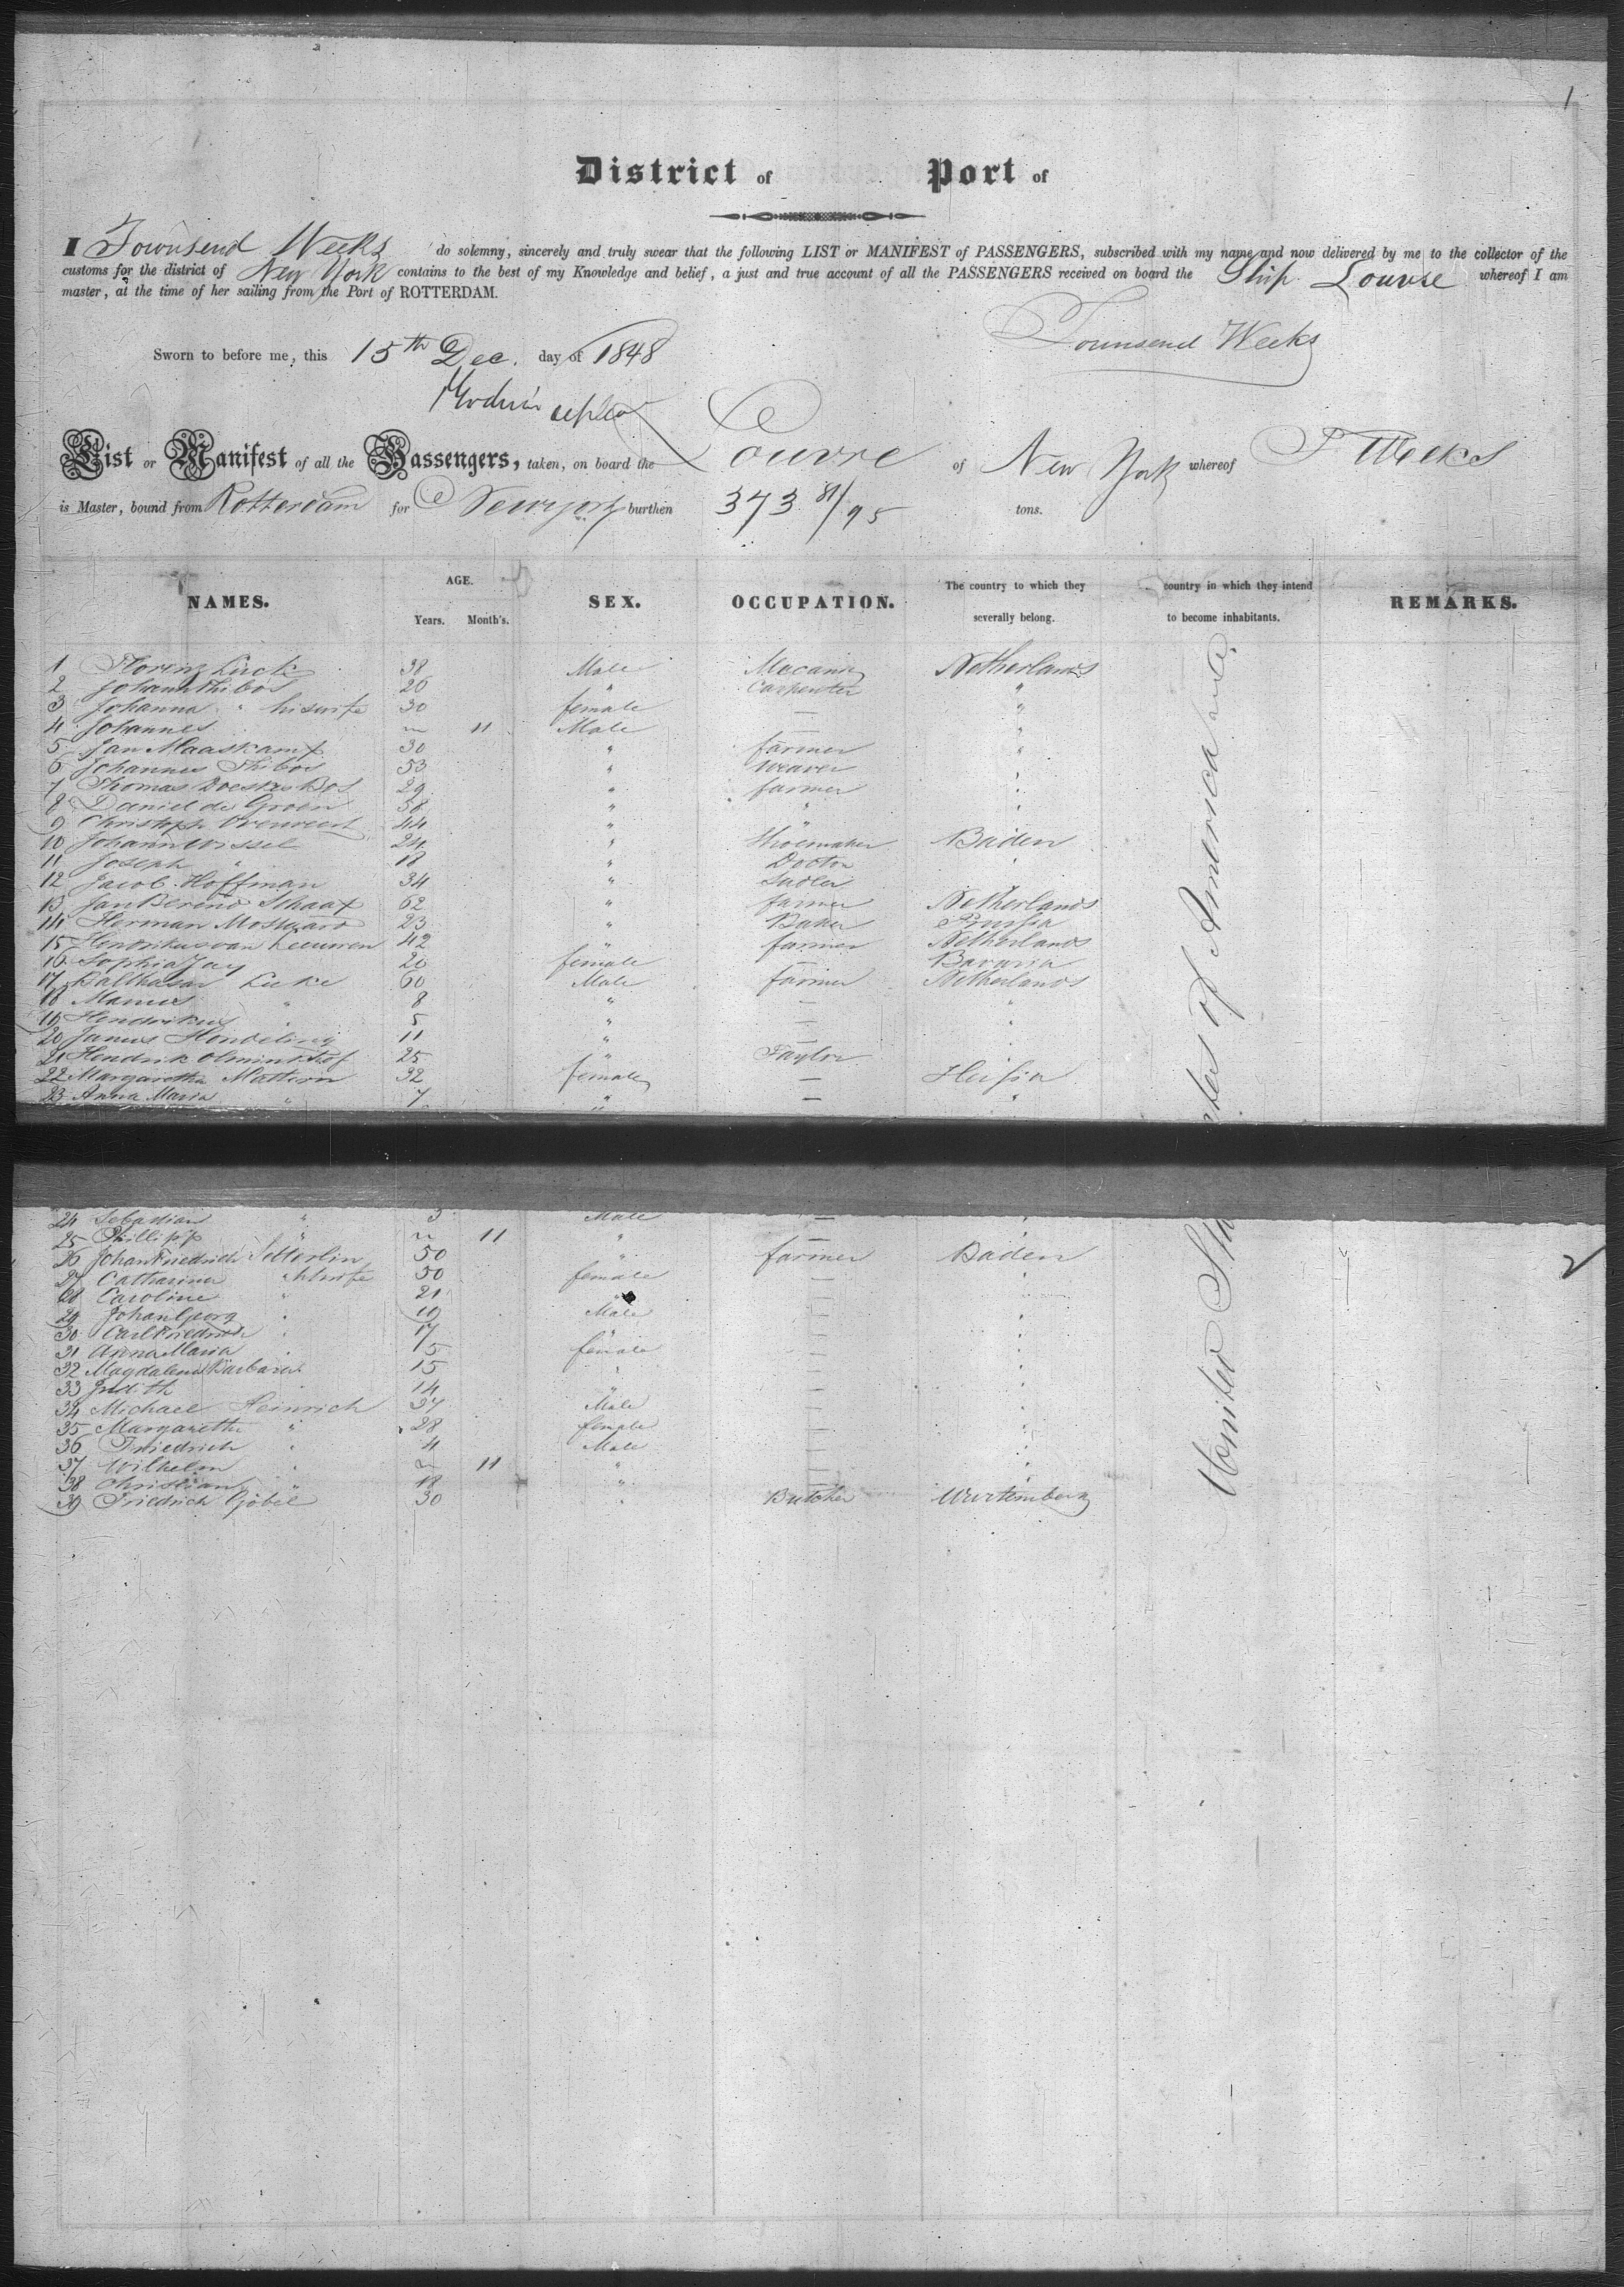 1
District of Port of
I Townsend Weeks do solemny, sincerely and truly swear that the following LIST or MANIFEST of PASSENGERS, subscribed with my name and now delivered by me to the collector of the
customs for the district of New York contains to the best of my Knowledge and belief, a just and true account of all the PASSENGERS received on board the Ship Louvre whereof I am
master, at the time of her sailing from the Port of ROTTERDAM.
Townsend Weeks
Sworn to before me, this 15th Dec. day of 1848
List or Manifest of all the Passengers, taken, on board the Louvre of New York whereof T Weeks
is Master, bound from Rotterdam for Newyork burthen 373 81/95 tons.
NAMES. AGE. Years. Month's. SEX. OCCUPATION. The country to which they severally belong. country in which they intend to become inhabitants. REMARKS.
1 Florenz Luck 38 Male Mecanic Netherlands
2 Johann Thibos 26 " Carpenter "
3 Johanna " his wife 30 female — "
4 Johannes 11 Male — "
5 Jan Maaskamp 30 " farmer "
6 Johannes Thibos 53 " weaver
7 Thomas Bos 29 " farmer "
8 Daniel de Groen 58 " " "
9 Christoph 44 " "
10 Johann Wissel 24 " Shoemaker Baden
11 Joseph " 18 " Doctor "
12 Jacob Hoffman 34 " Sadler
13 Jan Berend Schaax 62 " farmer Netherlands
14 Herman 23 " Baker Prussia
15 Hendrikus van Leeuwen 42 " farmer Netherlands
16 Sophia Jay 20 female Bavaria
17 Balthasar Luke 60 Male farmer Netherlands
18 " 8 " — "
19 Hendrikus " 5 " — "
20 Janus 11 " — "
21 Hendrik 25 " Taylor "
22 Margaretha Mattern 32 female — Hessia
23 Anna Maria " 7 " — "
24 Sebastian " 3 Male — "
25 Phillipp " 11 " — "
26 Johan Friedrich Setterlin 50 " farmer Baden
27 Catharina wife 50 female — "
28 Caroline " 21 " — "
29 Johan Georg " 19 Male — "
30 Carl Friedrich " 17 " — "
31 Anna Maria " 15 female — "
32 Magdalena Barbara 15 " — "
33 Judith " 14 " — "
34 Michael Heinrich 37 Male — "
35 Margaretha " 28 female — "
36 Friedrich " 4 Male — "
37 Wilhelm " 11 " — "
38 Christian " 18 " — "
39 Friedrich Göbel 30 " Butcher Wurtemberg
United States of America
2